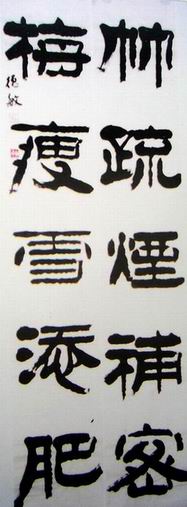 竹疏煙補密
梅瘦雪添肥
德敏